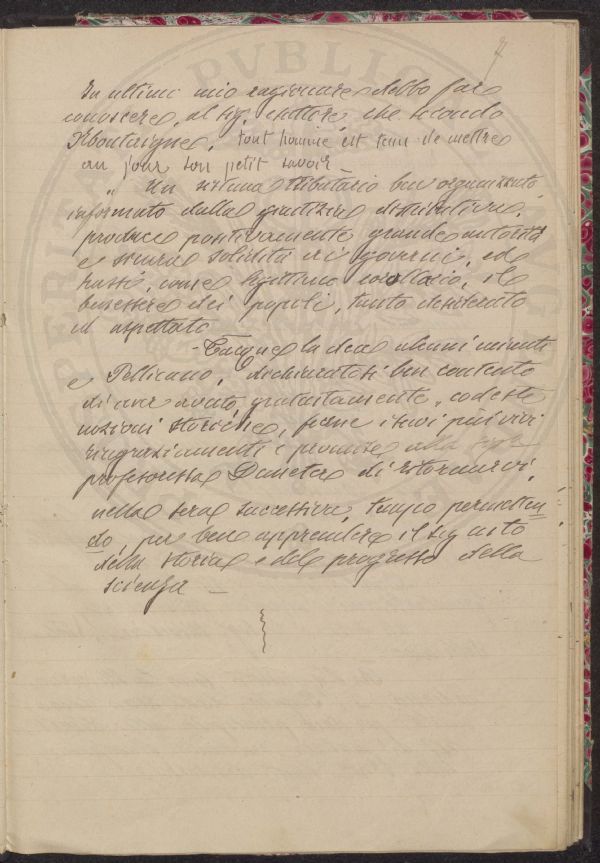 7
In ultimo mio ragionare debbo far
conoscere, al sig. esattore, che secondo
Montaigne, tout homme est tenu de mettre
au jour son petit savoir
„ Un sistema tributario ben organizzato,
informato dalla giustizia distributiva,
produce positivamente, grande autorità
e sicura solidità ai governi, ed
hassi, come legittimo corollario, il
benessere dei popoli, tanto desiderato
ed aspettato
- Tacque la dea alcuni minuti
e Pellicano, dichiaratosi ben contento
di aver avuto, gratuitamente, codeste
nozioni storiche, fecene i suoi più vivi
ringraziamenti e promise alla
professoressa Demetra di ritornarvi,
nella sera successiva, tempo permetten-
do, per bene apprendere il seguito
della storia e del progresso della
scienza —